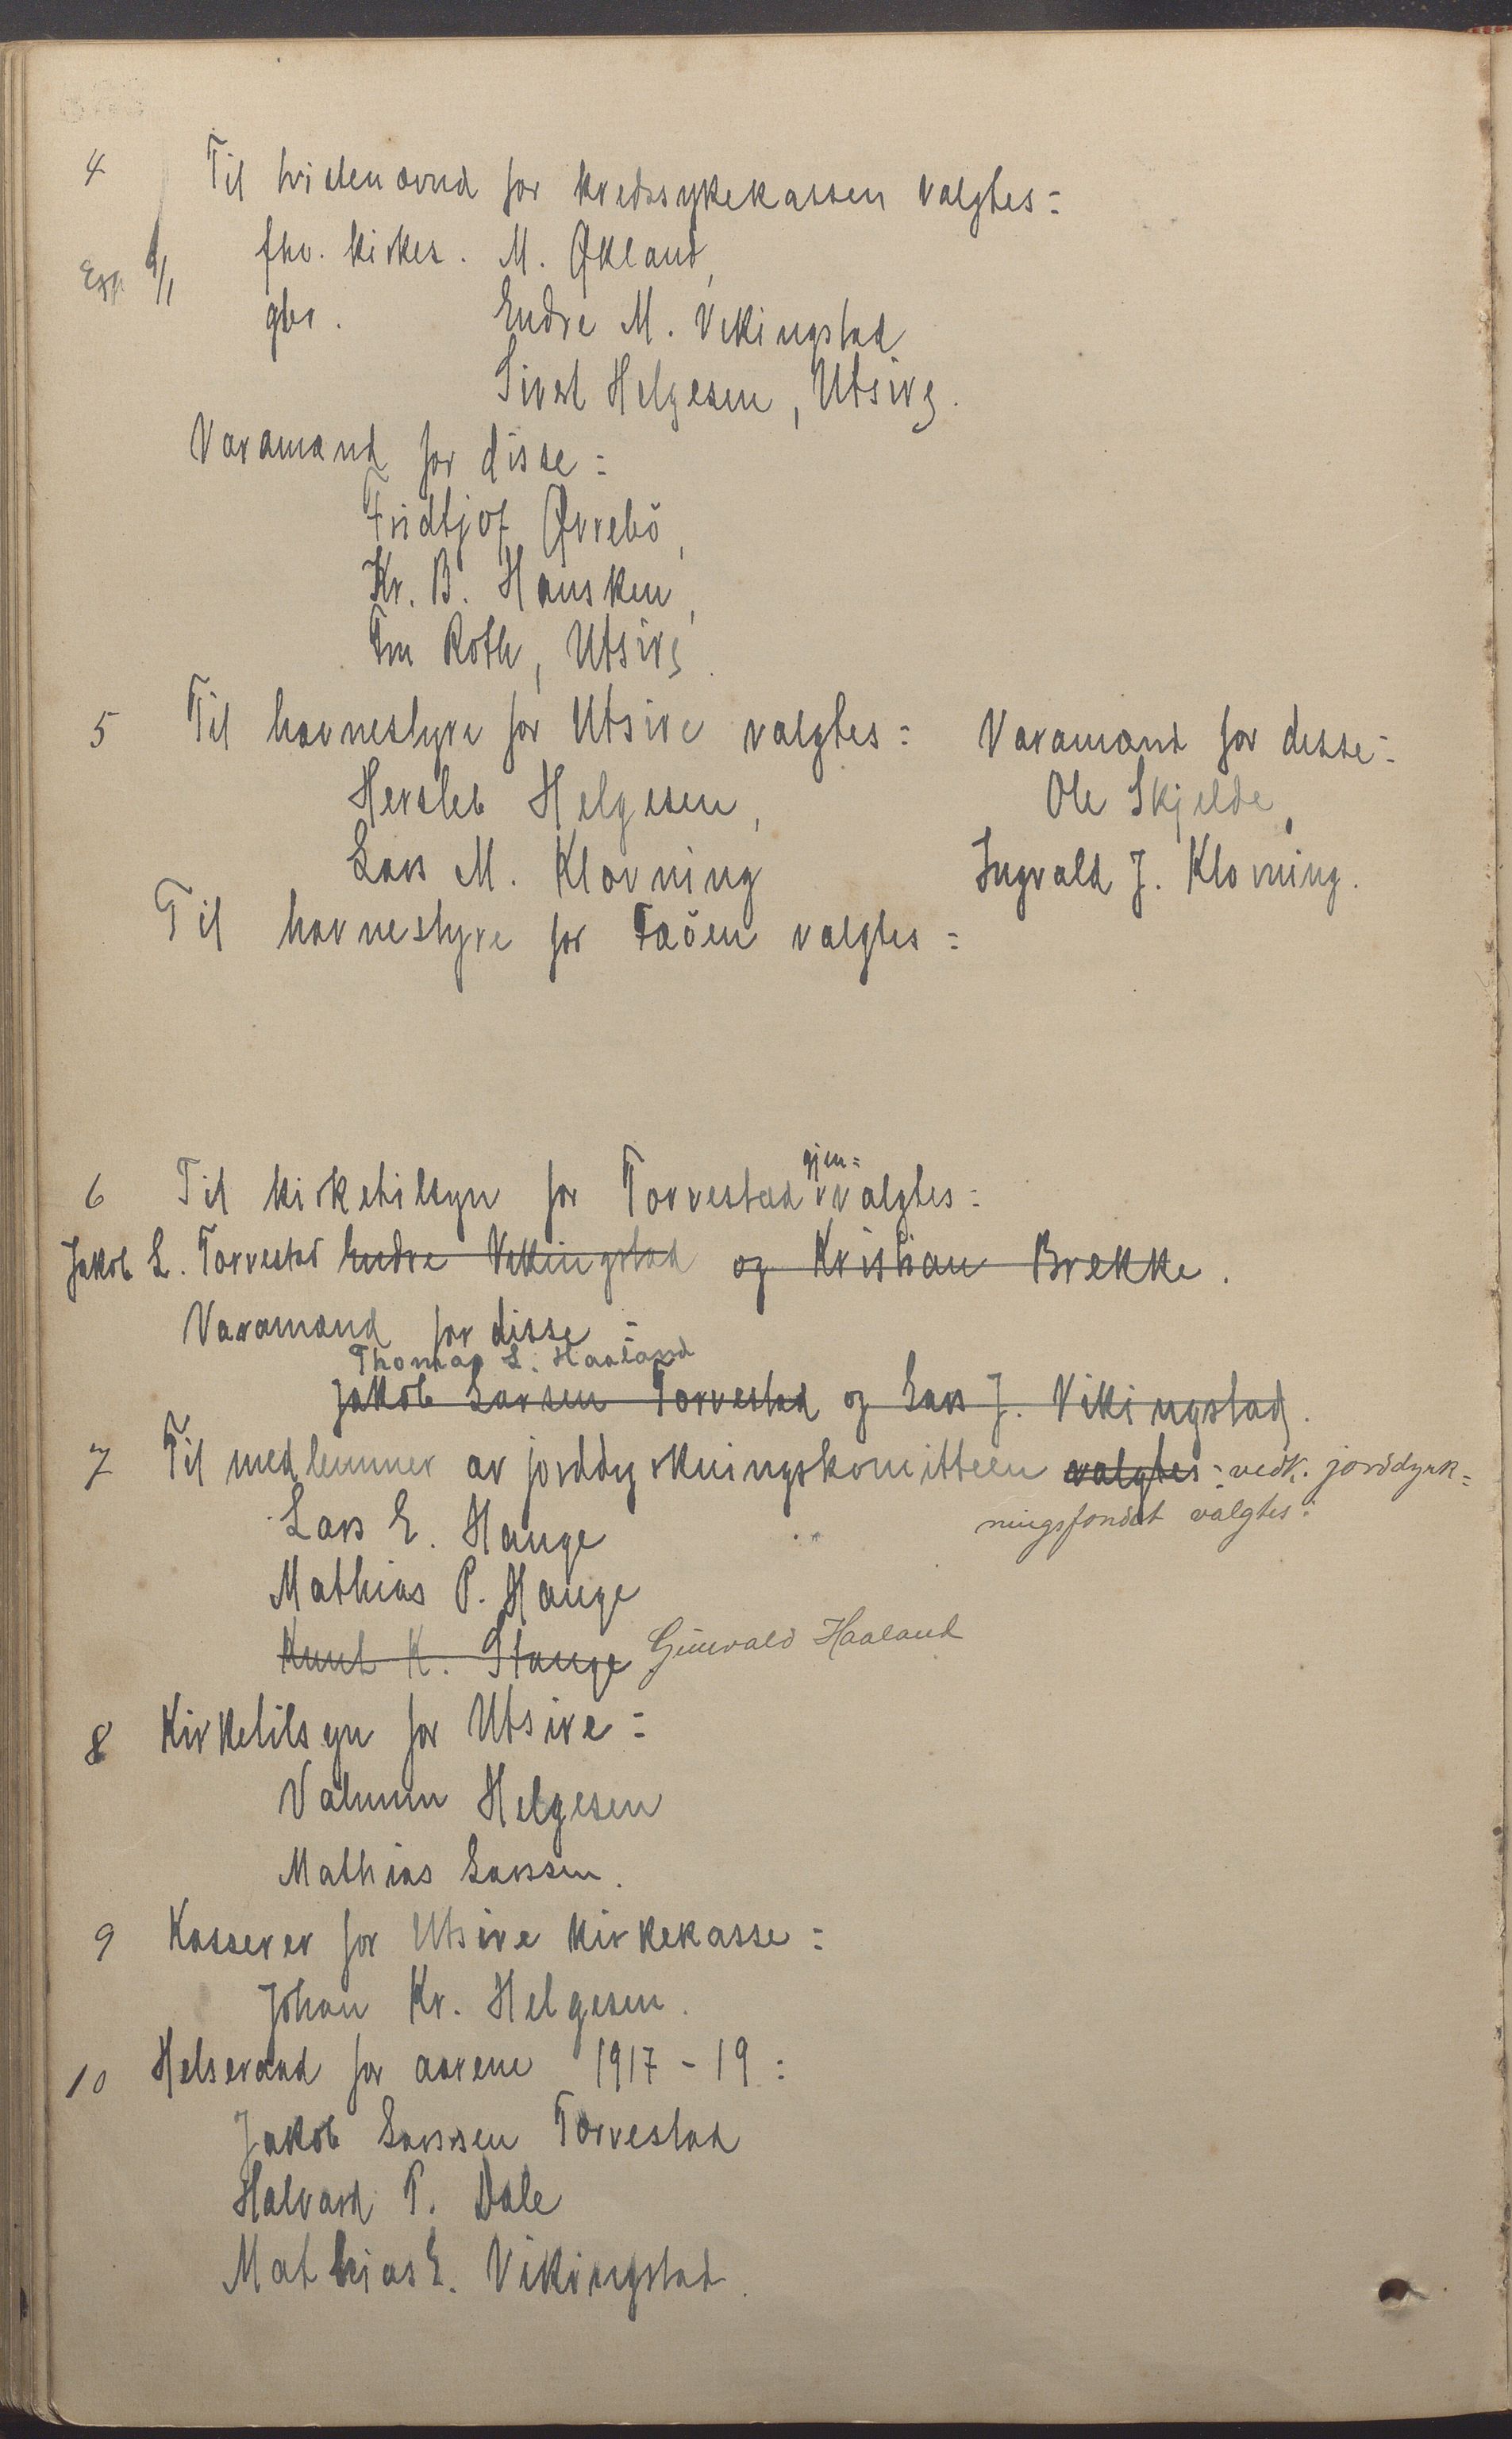 4 Til tvistenævnd for kredssykekassen valgtes:
Exp. 9/1
fhv. kirkes. M. Økland,
gbr. Endre M. Vikingstad
Sivert Helgesen, Utsire.
Varamænd for disse:
Fridtjof Øvrebö,
Kr. B. Hausken,
Tm Roth, Utsire.
5 Til havnestyre for Utsire valgtes: Varamænd for disse:
Hersleb Helgesen, Ole Skjelde,
Lars M. Klovning Ingvald J. Klovning.
Til havnestyre for Fæöen valgtes:
gjen=
6 Til kirketilsyn for Torvestad valgtes:
Jakob L. Torvestad Endre Vikingstad og Kristian Brekke.
Varamænd for disse:
Thomas L. Haaland
Jakob Larsen Torvestad og Lars J. Vikingstad.
7 Til medlemmer av jorddyrkningskomitteen valgtes: vedk. jorddyrk=
ningsfondet valgtes:
Lars E. Hauge
Mathias P. Hauge
Knut K. Stange Gunvald Haaland
8 Kirketilsyn for Utsire:
Valnum Helgesen
Mathias Larssen.
9 Kasserer for Utsire kirkekasse:
Johan Kr. Helgesen.
10 Helseraad for aarene 1917-19:
Jakob Larssen Torvestad
Halvard P. Dale
Mathias E. Vikingstad.